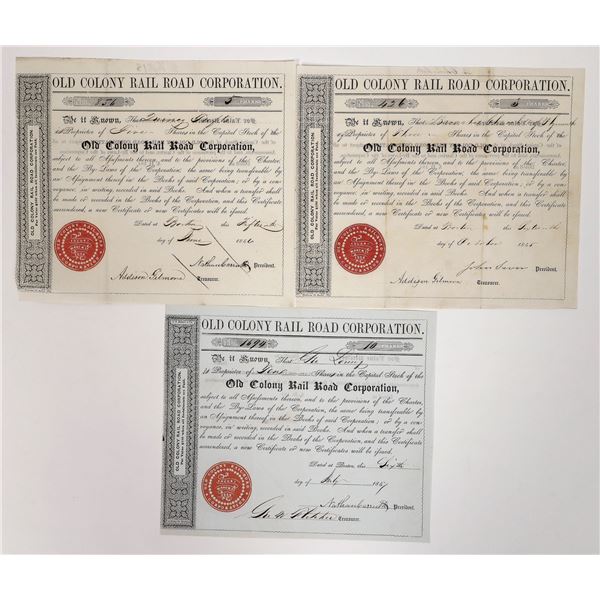 OLD COLONY RAIL ROAD CORPORATION.
856 5
Be it Known, That
is Proprietor of Shares in the Capital Stock of the
Old Colony Rail Road Corporation,
subject to all Assessments thereon, and to the provisions of the Charter,
and the By-Laws of the Corporation, the same being transferable by
an Assignment thereof, in the Books of the Corporation; or by a con-
veyance, in writing, recorded in said Books. And when a transfer shall
be made or recorded in the Books of the Corporation, and this Certificate
surrendered, a new Certificate or new Certificates will be issued.
Dated at Boston this Fifteenth
day of June
President.
Addison Gilmore Treasurer.
OLD COLONY RAIL ROAD CORPORATION.
OLD COLONY RAIL ROAD CORPORATION.
426
Be it Known, That
is Proprietor of Three Shares in the Capital Stock of the
Old Colony Rail Road Corporation,
subject to all Assessments thereon, and to the provisions of the Charter,
and the By-Laws of the Corporation, the same being transferable by
an Assignment thereof, in the Books of the Corporation; or by a con-
veyance, in writing, recorded in said Books. And when a transfer shall
be made or recorded in the Books of the Corporation, and this Certificate
surrendered, a new Certificate or new Certificates will be issued.
Dated at Boston this
day of October 1845
President.
Addison Gilmore Treasurer.
OLD COLONY RAIL ROAD CORPORATION.
OLD COLONY RAIL ROAD CORPORATION.
1694 10
Be it Known, That
is Proprietor of Shares in the Capital Stock of the
Old Colony Rail Road Corporation,
subject to all Assessments thereon, and to the provisions of the Charter,
and the By-Laws of the Corporation, the same being transferable by
an Assignment thereof, in the Books of the Corporation; or by a con-
veyance, in writing, recorded in said Books. And when a transfer shall
be made or recorded in the Books of the Corporation, and this Certificate
surrendered, a new Certificate or new Certificates will be issued.
Dated at Boston, this Sixth
day of
President.
Treasurer.
OLD COLONY RAIL ROAD CORPORATION.